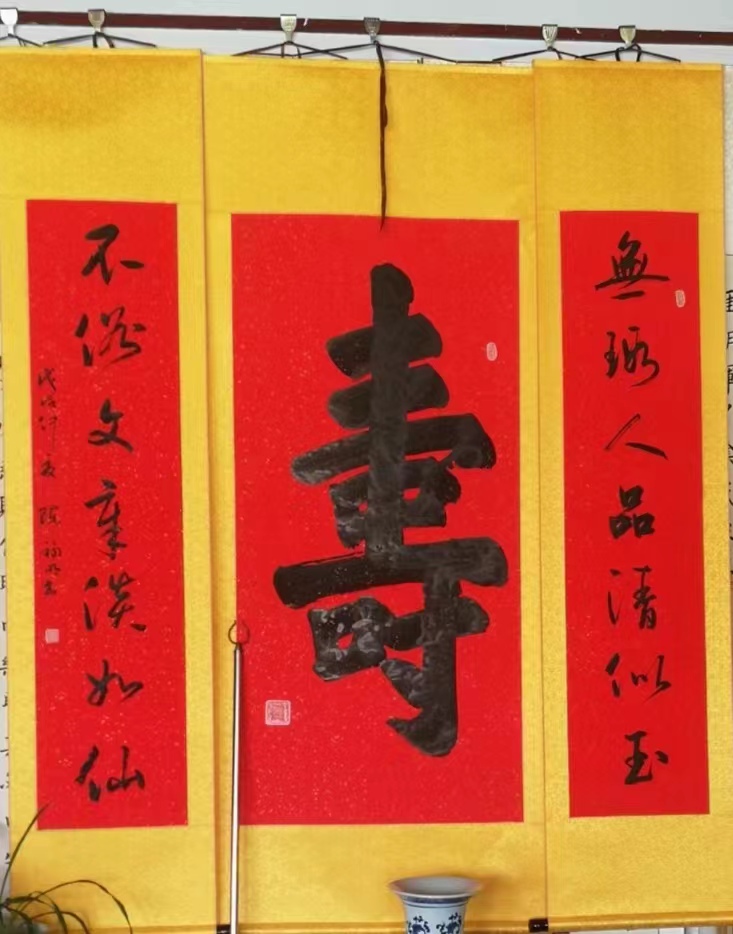 無瑕人品清似玉
壽
不俗文章淡如仙
戊戌仲夏